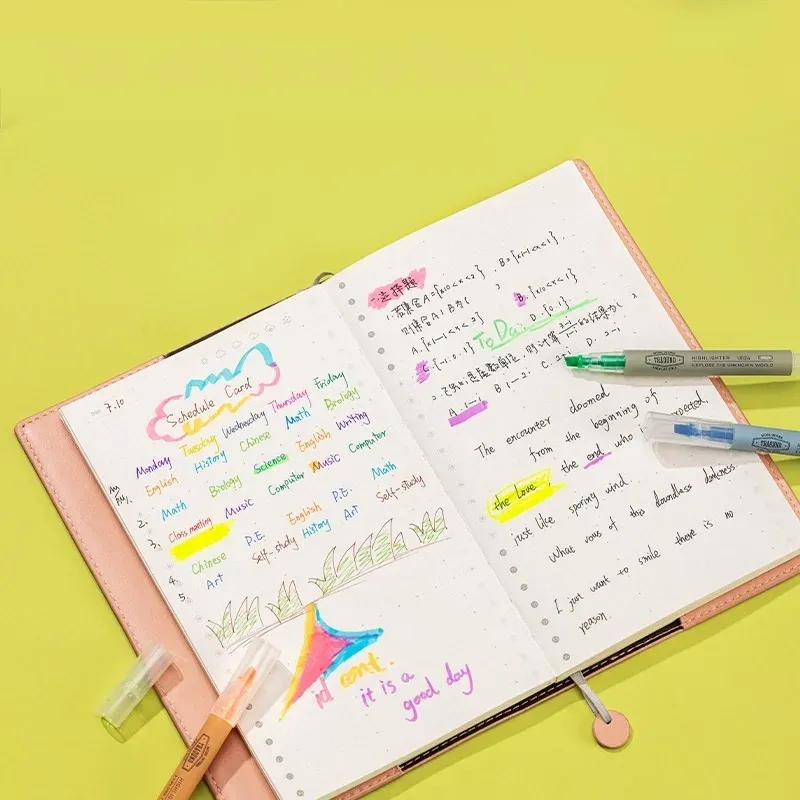 7.10
Schedule Card
Monday Tuesday Wednesday Thursday Friday
English History Chinese Math Biology
Math Biology Science English Writing
Class meeting Music Computer Music Computer
Chinese P.E. English P.E. Math
Art Self-study History Art Self-study
2.
3.
4.
5.
it is a
good day
一.选择题
1.若集合A={x|0<x<2}, B={x|-1<x<1},
则集合A∩B为(
A.{x|-1<x<2} B.{x|0<x<1}
C.{-1.0.1} D.{0.1}
To Do
The encounter doomed
from the beginning of
the end who is expected,
the love
just like spring wind
What of the boundless darkness
I just want to smile there is no
reason.
HIGHLIGHTER
EXPLORE THE UNKNOWN WORLD